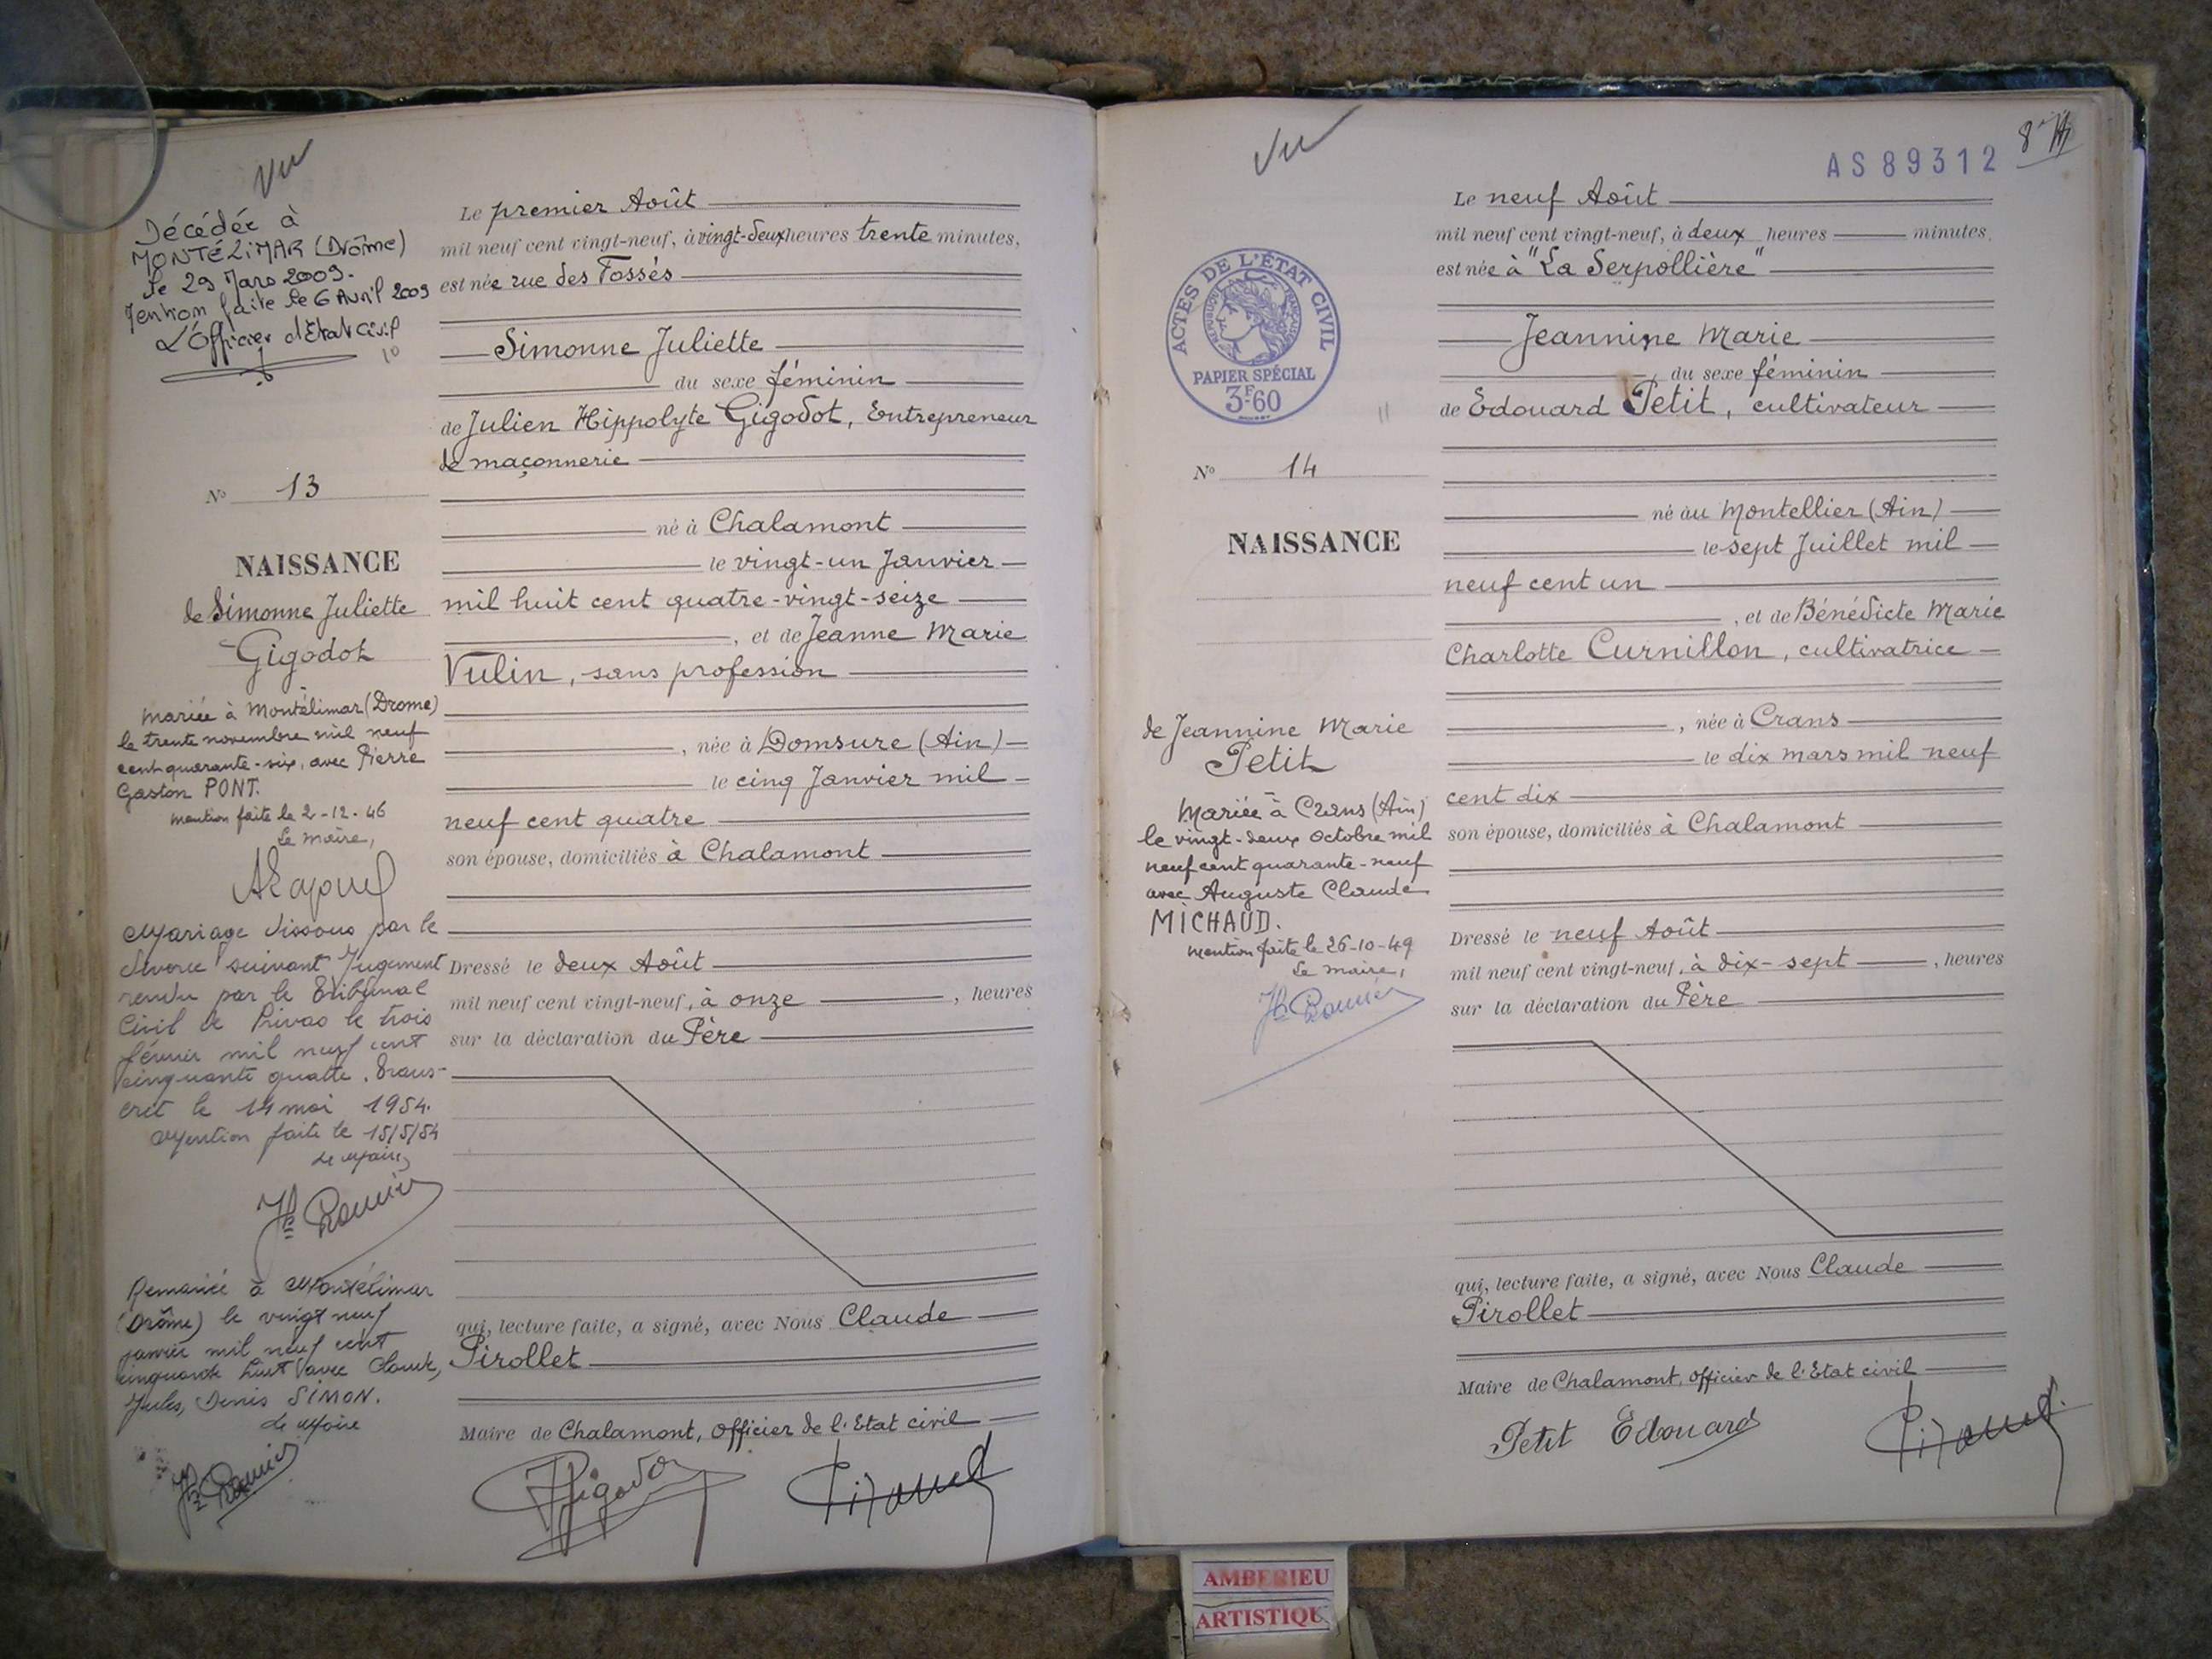 Vu
Décédée à
MONTÉLIMAR (Drôme)
le 29 Mars 2009.
Mention faite le 6 Avril 2009
L'Officier d'Etat Civil
10
N° 13
NAISSANCE
de Simonne Juliette
Gigodot
Mariée à Montélimar (Drome)
le trente novembre mil neuf
cent quarante-six, avec Pierre
Gaston PONT.
mention faite le 2-12-46
Le Maire,
Mariage dissous par le
divorce suivant Jugement
rendu par le Tribunal
Civil de Privas le trois
février mil neuf cent
cinquante quatre. Trans-
crit le 14 mai 1954.
Mention faite le 15/5/54
Le Maire,
Remariée à Montélimar
(Drôme) le vingt neuf
janvier mil neuf cent
cinquante huit avec Claude,
Jules, Denis SIMON.
Le Maire
Le premier Août
mil neuf cent vingt-neuf, à vingt-deux heures trente minutes,
est née rue des Fossés
Simonne Juliette
du sexe féminin
de Julien Hippolyte Gigodot, Entrepreneur
de maçonnerie
né à Chalamont
le vingt-un Janvier
mil huit cent quatre-vingt-seize
, et de Jeanne Marie
Vulin, sans profession
, née à Domsure (Ain)
le cinq Janvier mil
neuf cent quatre
son épouse, domiciliés à Chalamont
Dressé le deux Août
mil neuf cent vingt-neuf, à onze , heures
sur la déclaration du Père
qui, lecture faite, a signé, avec Nous Claude
Pirollet
Maire de Chalamont, Officier de l'Etat civil
Gigodot
Vu
AS 89312
8
ACTES DE L'ÉTAT CIVIL
RÉPUBLIQUE FRANÇAISE
PAPIER SPÉCIAL
3F60
11
N° 14
NAISSANCE
de Jeannine Marie
Petit
Mariée à Crans (Ain)
le vingt-deux Octobre mil
neuf cent quarante-neuf
avec Auguste Claude
MICHAUD.
mention faite le 26-10-49
Le Maire,
Le neuf Août
mil neuf cent vingt-neuf, à deux heures minutes,
est née à "La Serpollière"
Jeannine Marie
, du sexe féminin
de Edouard Petit, cultivateur
né au Montellier (Ain)
le sept Juillet mil
neuf cent un
, et de Bénédicte Marie
Charlotte Curnillon, cultivatrice
, née à Crans
le dix mars mil neuf
cent dix
son épouse, domiciliés à Chalamont
Dressé le neuf Août
mil neuf cent vingt-neuf, à dix-sept , heures
sur la déclaration du Père
qui, lecture faite, a signé, avec Nous Claude
Pirollet
Maire de Chalamont, Officier de l'Etat civil
Petit Edouard
AMBERIEU
ARTISTIQU